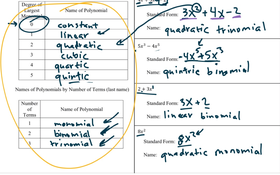 Degree of
Largest
Name of Polynomial
0
constant
linear
2
quadratic
3
cubic
4
quartic
5
quintic
Names of Polynomials by Number of Terms (last name)
Number
of
Terms
Name of Polynomial
1
monomial
2
binomial
3
trinomial
Standard Form: 3x² + 4x - 2
Name: quadratic trinomial
5x³ − 4x⁵
Standard Form: -4x⁵ + 5x³
Name: quintic binomial
2 + 3x
Standard Form: 3x + 2
Name: linear binomial
8x²
Standard Form: 8x²
Name: quadratic monomial